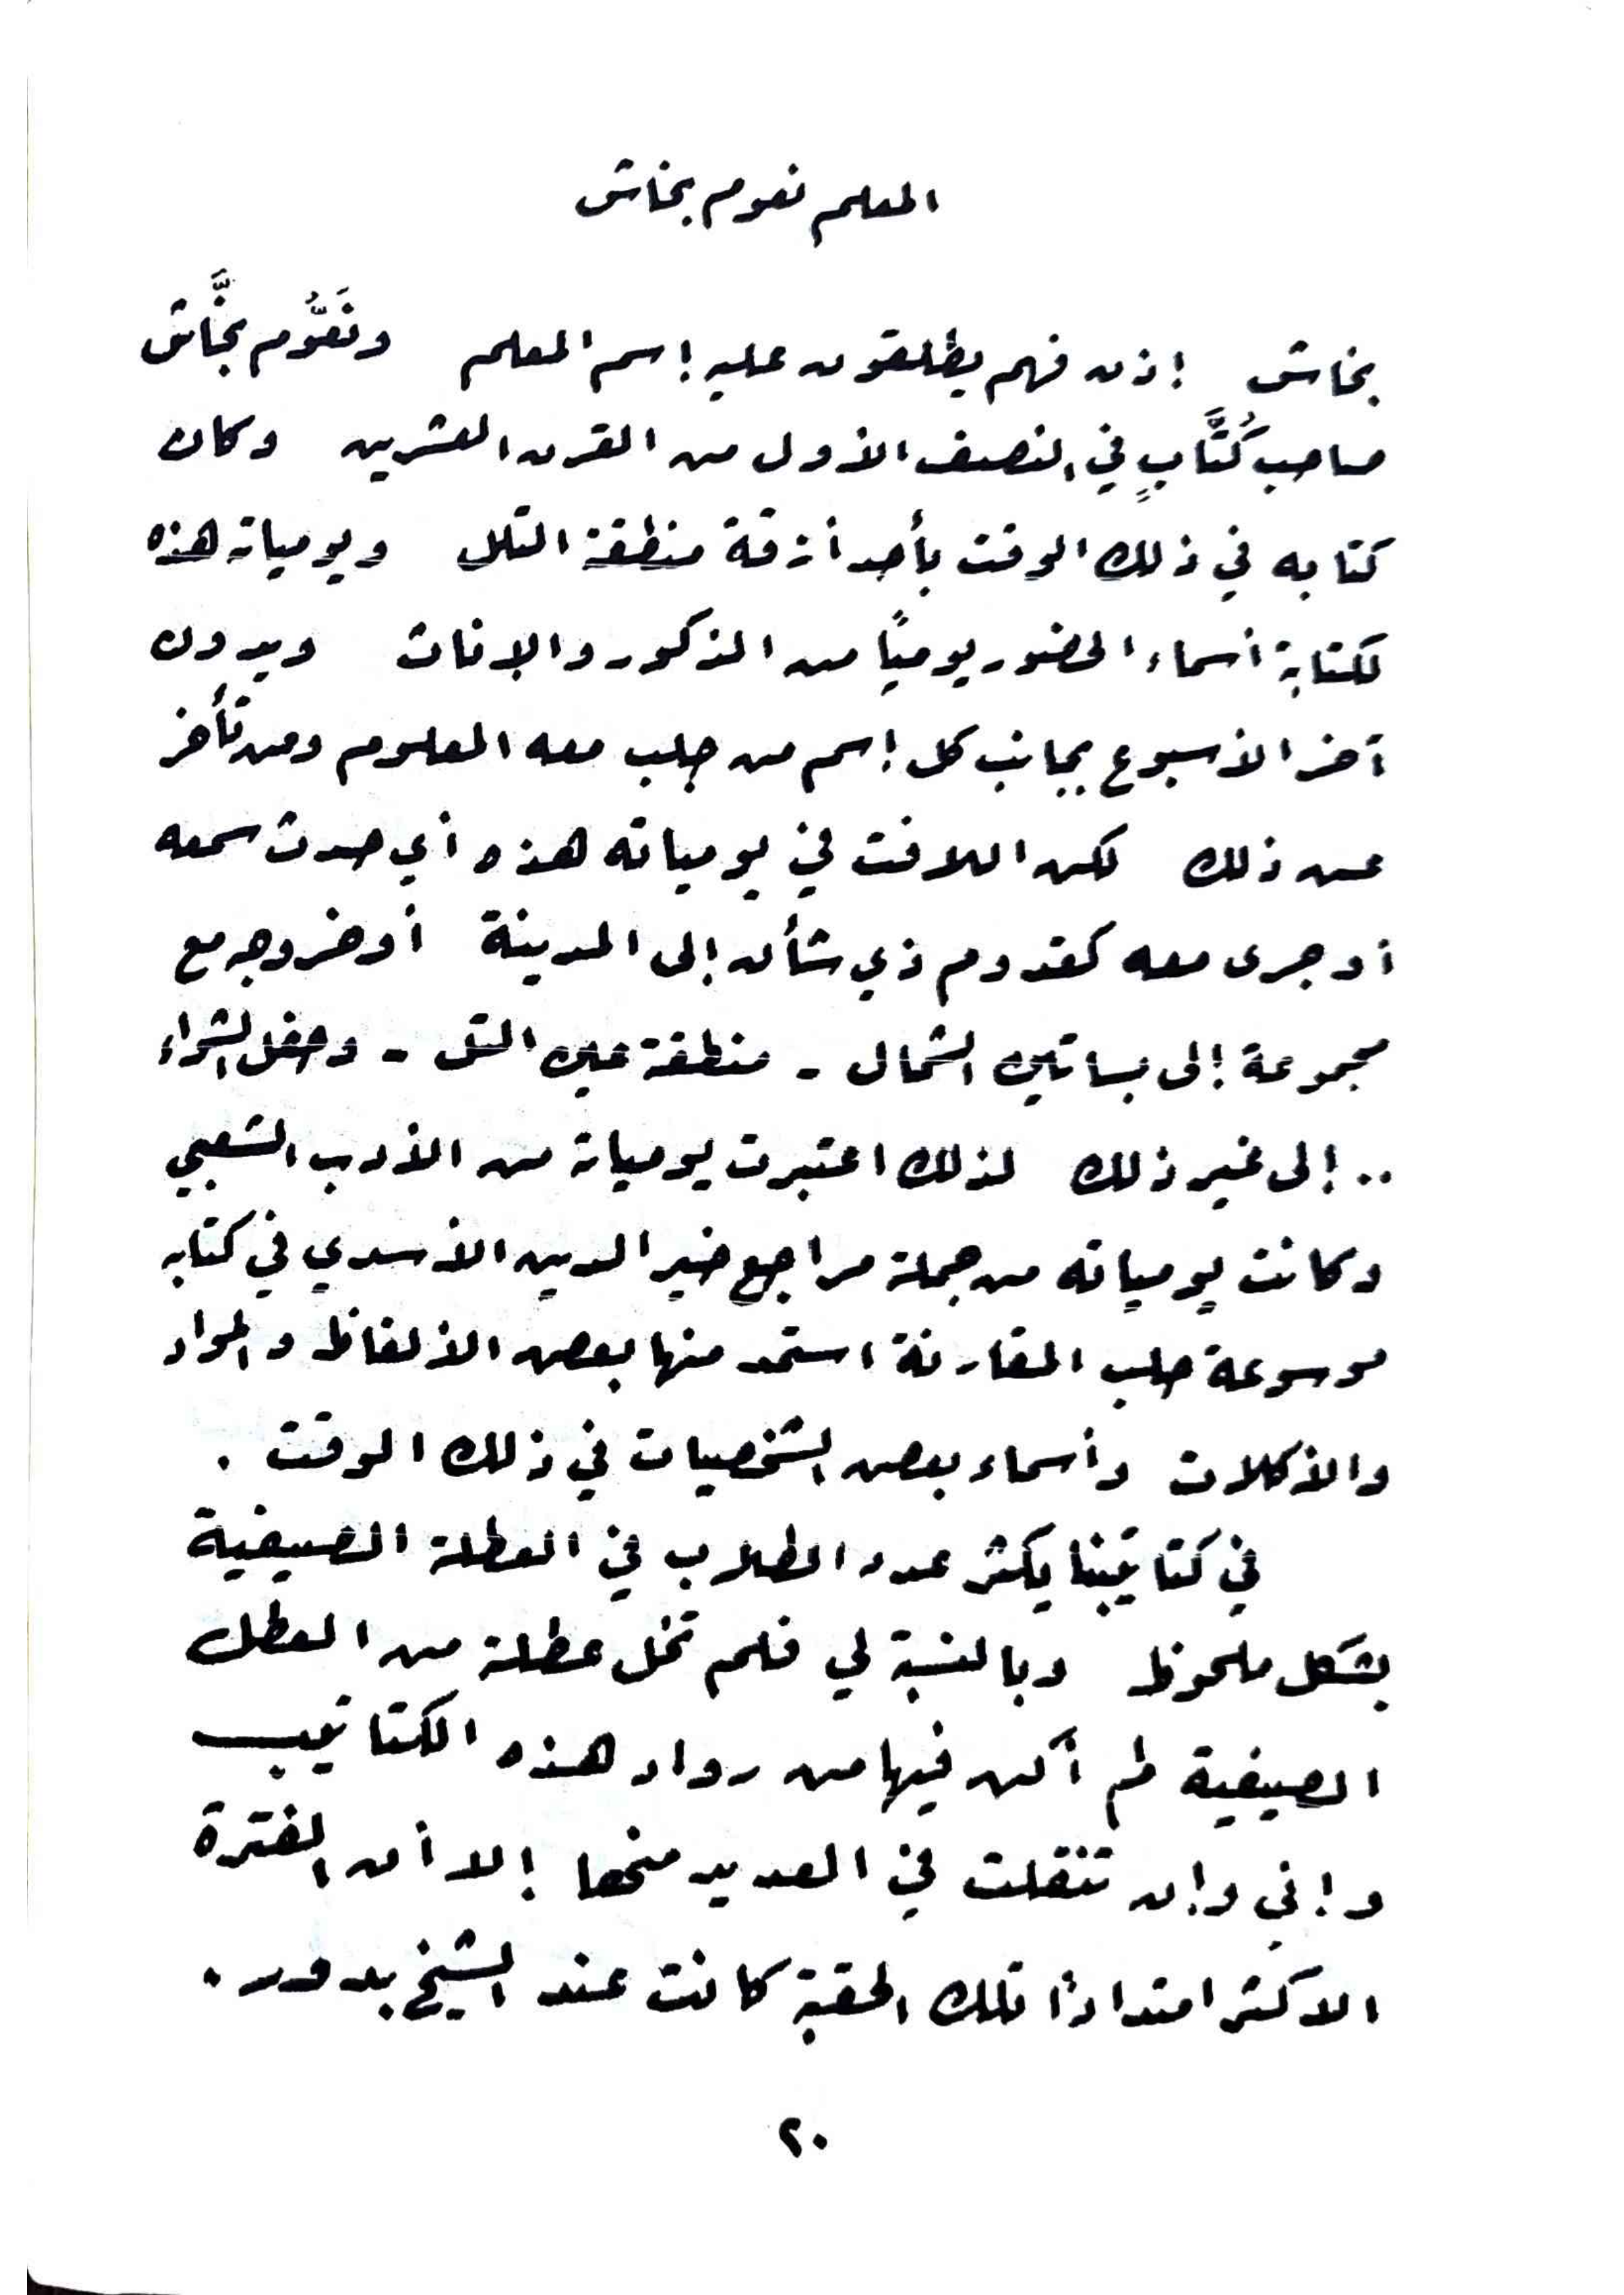 المعلم نعوم بخاش
بخاش إذن فهم يطلقون عليه إسم المعلم ونَعُّوم بخَّاش
صاحب كُتَّابٍ في النصف الأول من القرن العشرين وكان
كتابه في ذلك الوقت بأحد أزقة منطقة التلل ويومياته هذه
لكتابة أسماء الحضور يومياً من الذكور والإناث ويدون
آخر الأسبوع بجانب كل إسم من جلب معه المعلوم ومن تأخر
عن ذلك لكن اللافت في يومياته هذه أي حدث سمعه
أو جرى معه كقدوم ذي شأن إلى المدينة أو خروجه مع
مجموعة إلى بساتين الشمال - منطقة عين التل - وحفل الشواء
.. إلى غير ذلك لذلك اعتبرت يومياته من الأدب الشعبي
وكانت يومياته من جملة مراجع خير الدين الأسدي في كتابه
موسوعة حلب المقارنة استمد منها بعض الألفاظ والمواد
والأكلات وأسماء بعض الشخصيات في ذلك الوقت .
في كتاتيبنا يكثر عدد الطلاب في العطلة الصيفية
بشكل ملحوظ وبالنسبة لي فلم تخل عطلة من العطل
الصيفية لم أكن فيها من رواد هذه الكتاتيب
وإني وإن تنقلت في العديد منها إلا أن الفترة
الأكثر امتداداً تلك الحقبة كانت عند الشيخ بدور .
٢٠